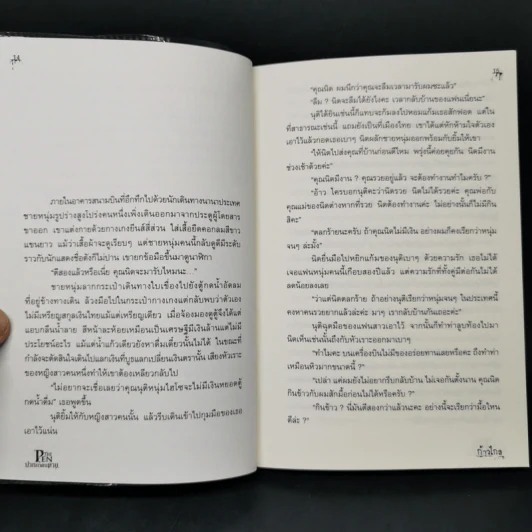 ภายในอาคารสนามบินที่อึกทึกไปด้วยนักเดินทางนานาประเทศ
ชายหนุ่มรูปร่างสูงโปร่งคนหนึ่งเพิ่งเดินออกมาจากประตูผู้โดยสาร
ขาออก เขาแต่งกายด้วยกางเกงยีนส์สีส่วน ใส่เสื้อยืดคอกลมสีขาว
แขนยาว แม้ว่าเสื้อผ้าจะดูเรียบๆ แต่ชายหนุ่มคนนี้กลับดูดีมีระดับ
ราวกับนักแสดงชื่อดังก็ไม่ปาน เขายกข้อมือขึ้นมาดูนาฬิกา
“ตีสองแล้วหรือเนี่ย คุณนิดจะมารับไหมนะ...”
ชายหนุ่มลากกระเป๋าเดินทางใบเขื่องไปยังตู้กดน้ำอัดลม
ที่อยู่ข้างทางเดิน ล้วงมือไปในกระเป๋ากางเกงแต่กลับพบว่าตัวเอง
ไม่มีเหรียญสกุลเงินไทยแม้แต่เหรียญเดียว เมื่อจ้องมองดูตู้จึงได้แต่
แอบกลืนน้ำลาย สีหน้าละห้อยเหมือนเป็นเศรษฐีมีเงินล้านแต่ไม่มี
ประโยชน์อะไร แม้แต่น้ำแก้วเดียวยังหาดื่มเดี๋ยวนั้นไม่ได้ ในขณะที่
กำลังจะตัดสินใจเดินไปแลกเงินที่บูธแลกเปลี่ยนเงินตรานั้น เสียงหัวเราะ
ของหญิงสาวคนหนึ่งทำให้เขาต้องเหลียวกลับไป
“ไม่อยากจะเชื่อเลยว่าคุณนุติหนุ่มไฮโซจะไม่มีเงินหยอดตู้
กดน้ำดื่ม” เธอพูดขึ้น
นุติยิ้มให้กับหญิงสาวคนนั้น แล้วรีบเดินเข้าไปกุมมือของเธอ
เอาไว้แน่น
“คุณนิด ผมนึกว่าคุณจะลืมเวลามารับผมซะแล้ว”
“ลืม ? นิดจะลืมได้ยังไงคะ เวลากลับบ้านของแฟนเนี่ยนะ”
นุติได้ยินเช่นนี้ก็แทบจะก้มลงไปหอมแก้มเธอสักฟอด แต่ใน
ที่สาธารณะเช่นนี้ แถมยังเป็นที่เมืองไทย เขาได้แต่หักห้ามใจตัวเอง
เอาไว้แล้วกอดเธอเบาๆ นิดผลักชายหนุ่มออกพร้อมกับยิ้มให้เขา
“ให้นิดไปส่งคุณที่บ้านก่อนดีไหม พรุ่งนี้ค่อยคุยกัน นิดมีงาน
ช่วงเช้าด้วยค่ะ”
“คุณนิดมีงาน ? คุณรวยอยู่แล้ว จะต้องทำงานทำไมครับ ?”
“อ้าว ใครบอกนุติคะว่านิดรวย นิดไม่ได้รวยค่ะ คุณพ่อกับ
คุณแม่ของนิดต่างหากที่รวย นิดต้องทำงานค่ะ ไม่อย่างนั้นก็ไม่มีกิน
สิคะ”
“ตลกร้ายนะครับ ถ้าคุณนิดไม่มีเงิน อย่างผมก็คงเรียกว่าหนุ่ม
จนๆ ล่ะมั้ง”
นิดยื่นมือไปหยิกแก้มของนุติเบาๆ ด้วยความรัก เธอไม่ได้
เจอแฟนหนุ่มคนนี้เกือบสองปีแล้ว แต่ความรักที่ทั้งคู่มีต่อกันไม่ได้
ลดน้อยลงเลย
“ว่าแต่นิดตลกร้าย ถ้าอย่างนุติเรียกว่าหนุ่มจนๆ ในประเทศนี้
คงหาคนรวยยากแล้วล่ะค่ะ มาๆ เรากลับบ้านกันเถอะค่ะ”
นุติฉุดมือของแฟนสาวเอาไว้ จากนั้นก็ทำท่าลูบท้องไปมา
นิดเห็นเช่นนั้นถึงกับหัวเราะออกมาเบาๆ
“ทำไมคะ บนเครื่องบินไม่มีของอร่อยทานเลยหรือคะ ถึงทำท่า
เหมือนหิวมากขนาดนี้ ?”
“เปล่า แต่ผมยังไม่อยากรีบกลับบ้าน ไม่เจอกันตั้งนาน คุณนิด
กินข้าวกับผมสักมื้อก่อนไม่ได้หรือครับ ?”
“กินข้าว ? นี่มันตีสองกว่าแล้วนะคะ อย่างนี้จะเรียกว่ามื้อไหน
ดีล่ะ ?”